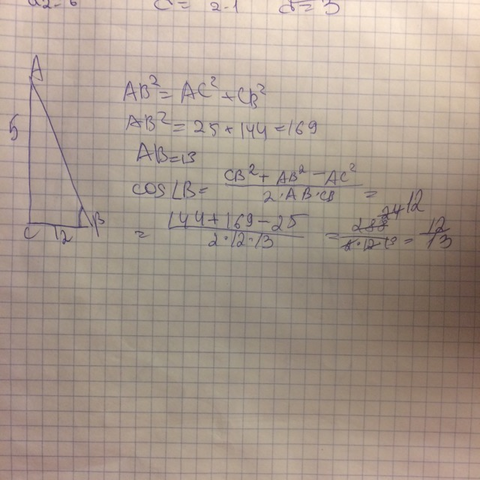 c = 2.1
A
5
C 12 B
AB² = AC² + CB²
AB² = 25 + 144 = 169
AB = 13
cos∠B = (CB² + AB² - AC²) / (2·AB·CB) =
= (144 + 169 - 25) / (2·12·13) = 288 24 12 / 12 13 = 12/13